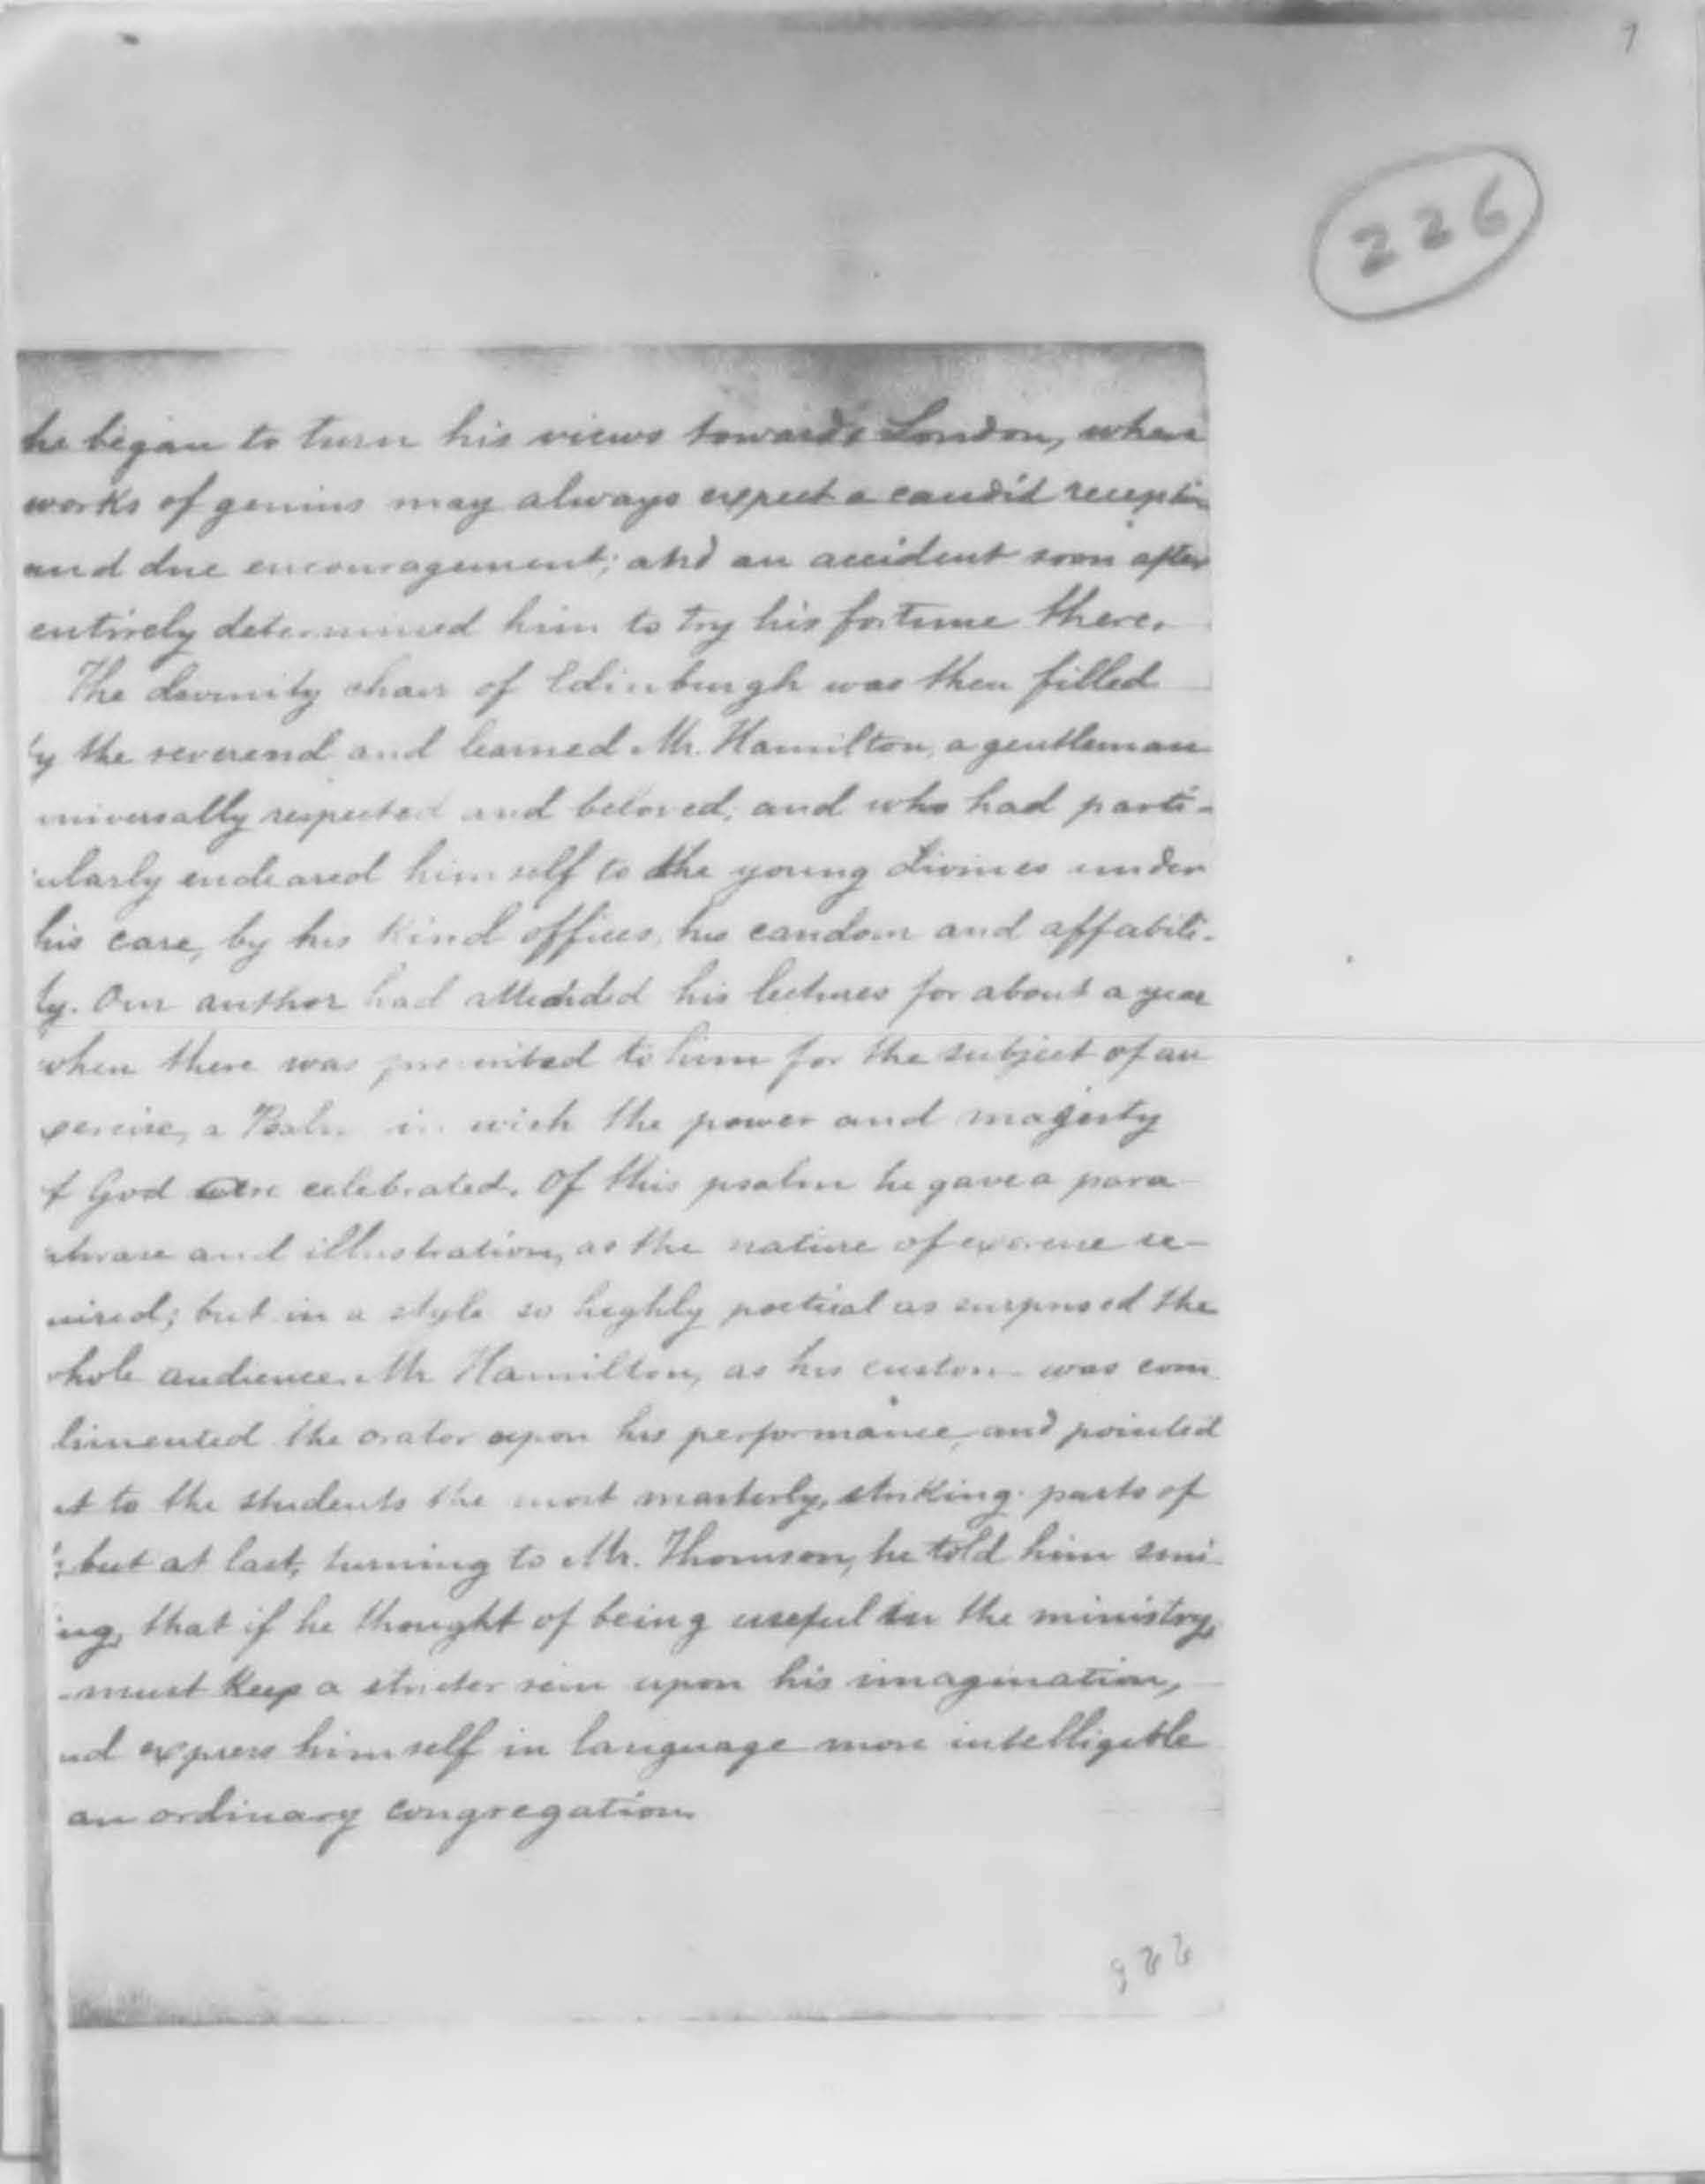 7
226
he began to turn his views towards London, where
works of genius may always expect a candid reception
and due encouragement; and an accident soon after
entirely determined him to try his fortune there.
The divinity chair of Edinburgh was then filled
by the reverend and learned Mr. Hamilton, a gentleman
universally respected and beloved; and who had parti-
ularly endeared himself to the young divines under
his care, by his kind offices, his candour and affabili-
ty. Our author had attended his lectures for about a year
when there was prescribed to him for the subject of an
xercise, a Psalm in wich the power and majesty
f God were celebrated. Of this psalm he gave a para-
phrase and illustration, as the nature of exercise re-
uired; but in a style so highly poetical as surprised the
whole audience. Mr Hamilton, as his custom was com
limented the orator upon his performance, and pointed
ut to the students the most masterly, striking parts of
but at last, turning to Mr. Thomson, he told him smi
ing, that if he thought of being useful in the ministry,
must keep a stricter rein upon his imagination,
nd express himself in language more intelligible
an ordinary congregation.